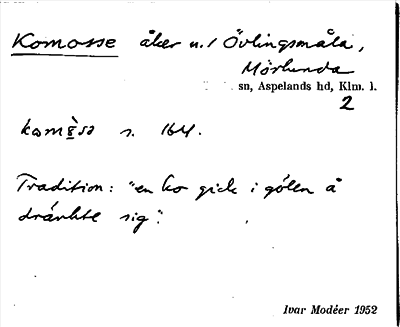 Komosse åker n. / Övlingsmåla,
Mörlunda
sn, Aspelands hd, Klm. l.
2
s. 164.
Tradition: "en ko gick i gölen å
dränkte sig".
Ivar Modéer 1952